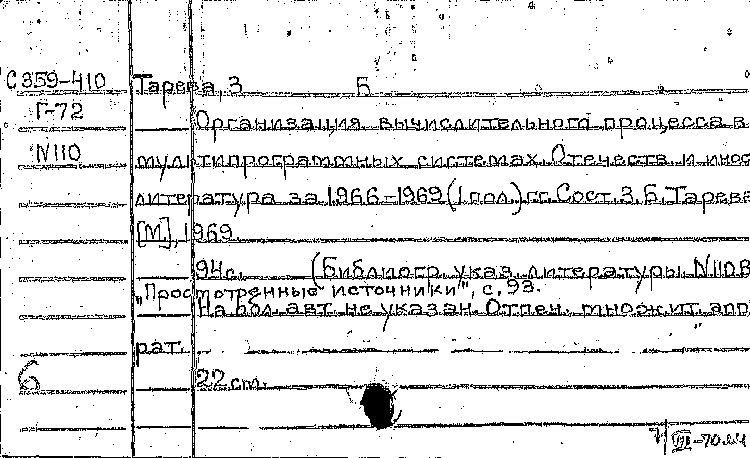 С359-410 Тарева, З Б
Г-72 Организация вычислительного процесса в
N110 мультипрограммных системах. Отечеств. и инос
литература за 1966-1969 (1 пол.) гг. Сост. З. Б. Тарева
[М.], 1969.
94 с. (Библиогр. указ. литературы N110В
„Просмотренные источники", с. 93.
На обл. авт. не указан. Отпеч. множит. апп
рат.
6 22 cm.
VIII-70